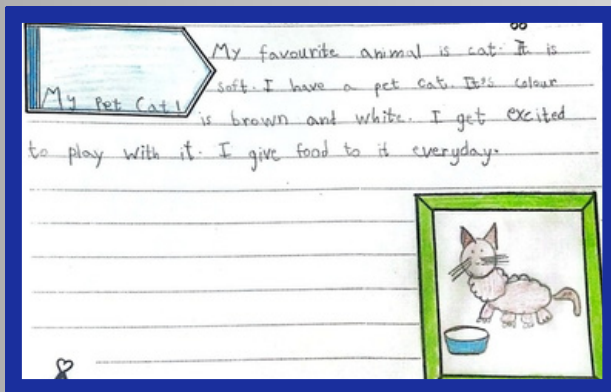 My favourite animal is cat. It is
soft. I have a pet cat. It's colour
My Pet Cat!
is brown and white. I get excited
to play with it. I give food to it everyday.